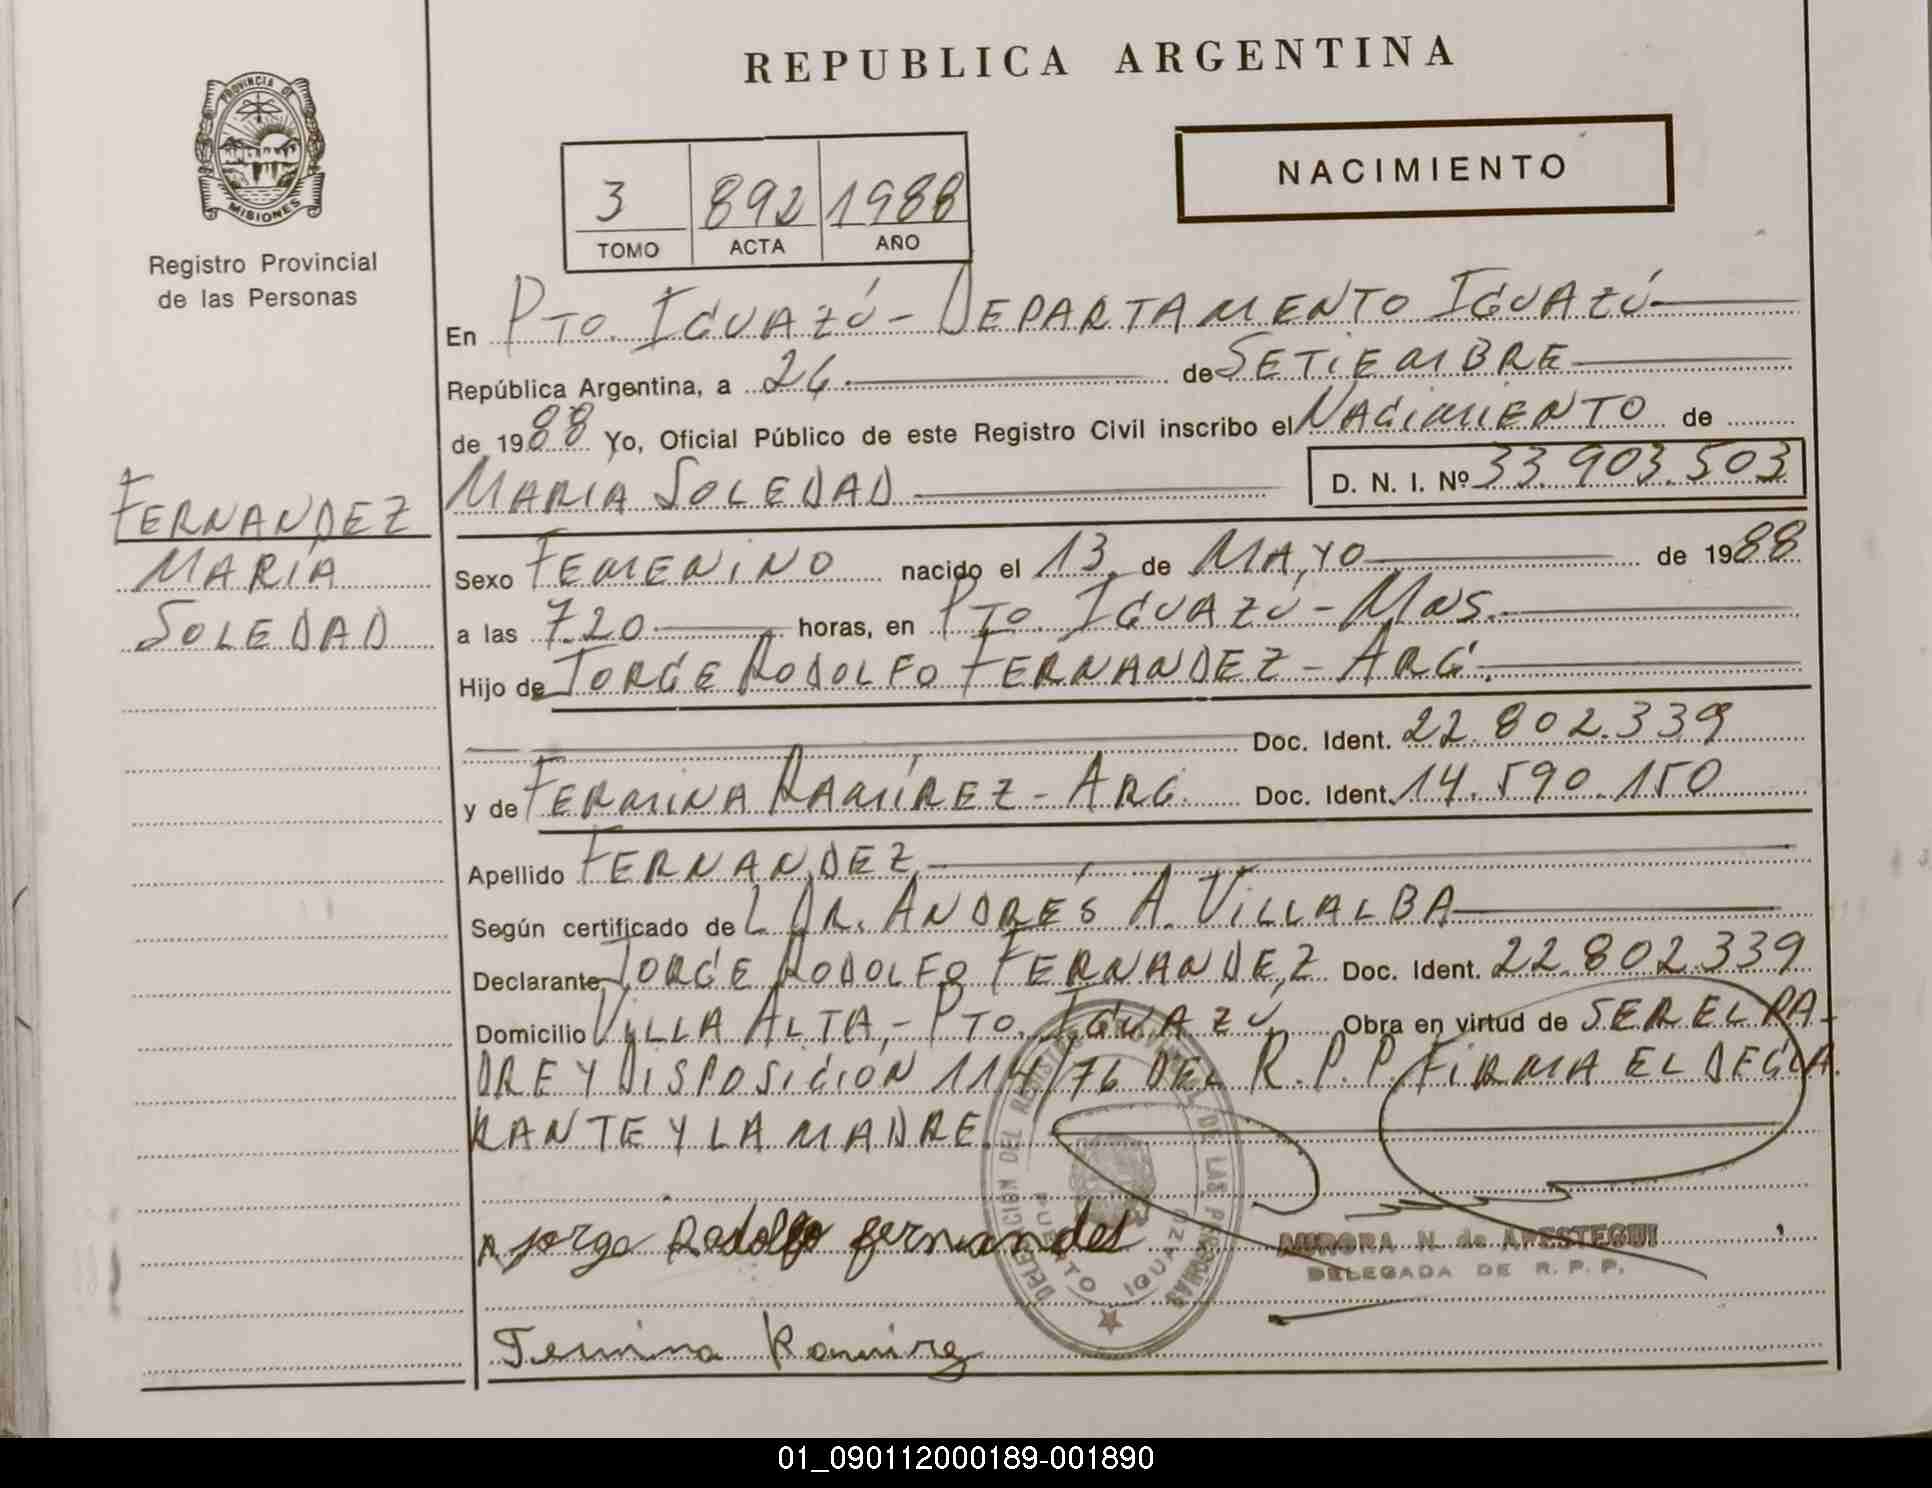 REPUBLICA ARGENTINA
PROVINCIA DE
MISIONES
Registro Provincial
de las Personas
NACIMIENTO
3 892 1988
TOMO ACTA AÑO
En PTO. IGUAZÚ - DEPARTAMENTO IGUAZÚ
República Argentina, a 26 de SETIEMBRE
de 1988 Yo, Oficial Público de este Registro Civil inscribo el NACIMIENTO de
MARIA SOLEDAD D. N. I. Nº 33.903.503
FERNANDEZ
MARÍA
SOLEDAD
Sexo FEMENINO nacido el 13 de MAYO de 1988
a las 7.20 horas, en PTO. IGUAZÚ - MNS.
Hijo de JORGE RODOLFO FERNANDEZ - ARG.
Doc. Ident. 22.802.339
y de FERMINA RAMÍREZ - ARG. Doc. Ident. 14.590.150
Apellido FERNANDEZ
Según certificado de L DR. ANDRÉS A. VILLALBA
Declarante JORGE RODOLFO FERNANDEZ Doc. Ident. 22.802.339
Domicilio VILLA ALTA - PTO. IGUAZÚ Obra en virtud de SER EL PA-
DRE Y DISPOSICIÓN 114/76 DEL R.P.P. FIRMA EL DECLA
RANTE Y LA MADRE.
DELEGACION DEL REGISTRO PROVINCIAL DE LAS PERSONAS
PUERTO IGUAZU
Jorge Rodolfo fernandes
AURORA N. de ARESTEGUI
DELEGADA DE R. P. P.
Femina Ramirez
01_090112000189-001890